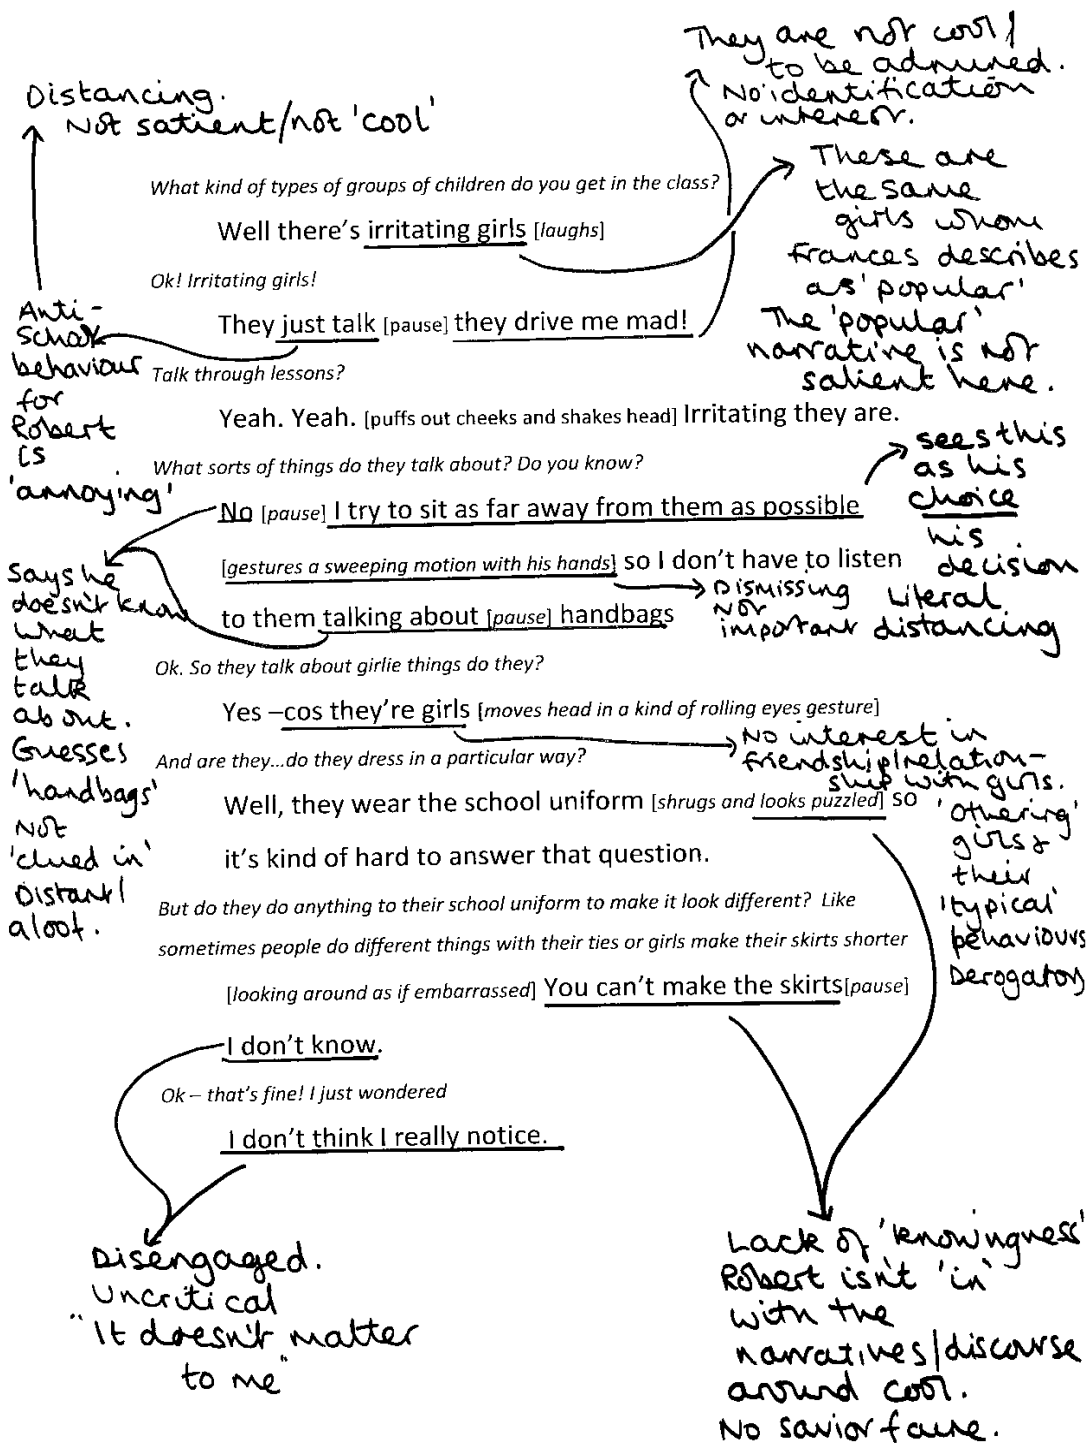 They are not cool/
to be admired.
No identification
or interest.
Distancing.
Not satient/not 'cool'
These are
the same
girls whom
Frances describes
as 'popular'
The 'popular'
narrative is not
salient here.
What kind of types of groups of children do you get in the class?
Well there's irritating girls [laughs]
Ok! Irritating girls!
They just talk [pause] they drive me mad!
Anti-
School
behaviour
for
Robert
is
'annoying'
Talk through lessons?
Yeah. Yeah. [puffs out cheeks and shakes head] Irritating they are.
What sorts of things do they talk about? Do you know?
No [pause] I try to sit as far away from them as possible
sees this
as his
choice
his
decision
Literal
distancing
[gestures a sweeping motion with his hands] so I don't have to listen
Dismissing
Not
important
to them talking about [pause] handbags
Says he
doesn't know
what
they
talk
about.
Guesses
'handbags'
Not
'clued in'
Distant/
aloof.
Ok. So they talk about girlie things do they?
Yes –cos they're girls [moves head in a kind of rolling eyes gesture]
No interest in
friendship/relation-
ship with girls.
'Othering'
girls &
their
'typical'
behaviours
Derogatory
And are they...do they dress in a particular way?
Well, they wear the school uniform [shrugs and looks puzzled] so
it's kind of hard to answer that question.
But do they do anything to their school uniform to make it look different? Like
sometimes people do different things with their ties or girls make their skirts shorter
[looking around as if embarrassed] You can't make the skirts[pause]
I don't know.
Ok – that's fine! I just wondered
I don't think I really notice.
Disengaged.
Uncritical
"It doesn't matter
to me"
Lack of 'knowingness'
Robert isn't 'in'
with the
narratives/discourse
around cool.
No savior faire.